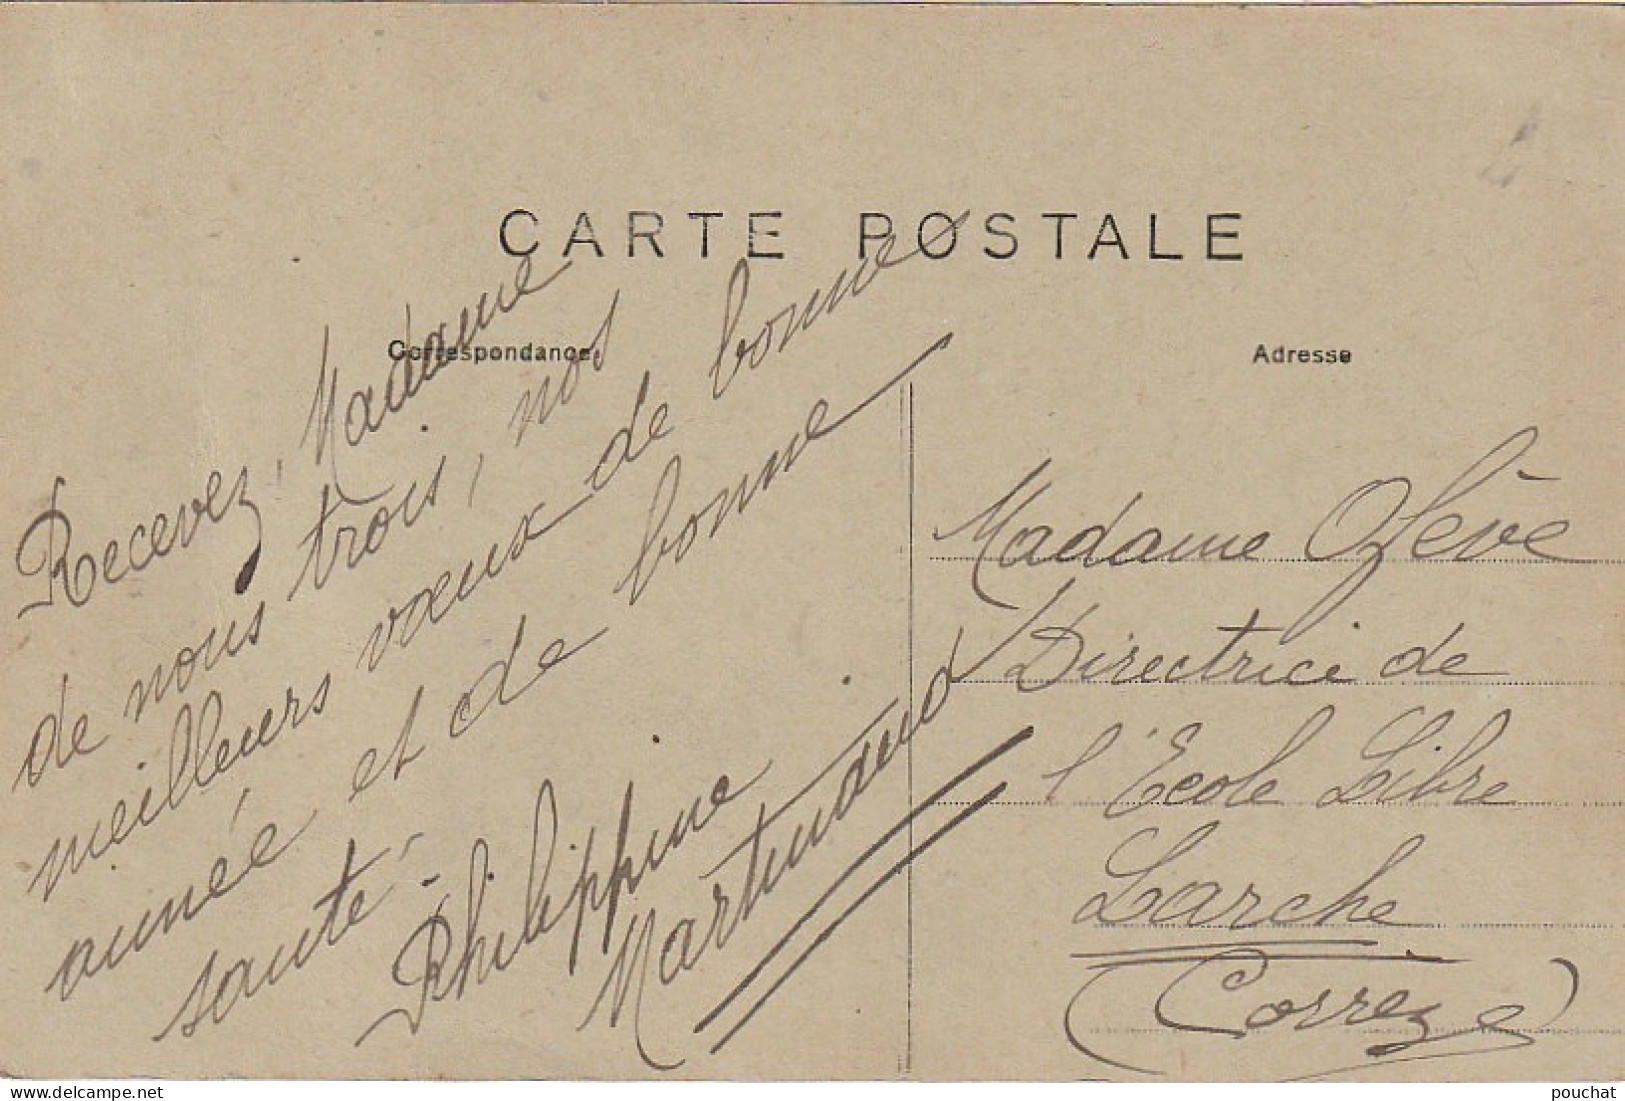 CARTE POSTALE
Correspondance
Adresse
Recevez, Madame
de nous trois, nos
meilleurs vœux de bonne
année et de bonne
santé.
Philippine
Martundeud
Madame Ozève
Directrice de
l'Ecole Libre
Larche
(Corrèze)
www.delcampe.net
pouchat